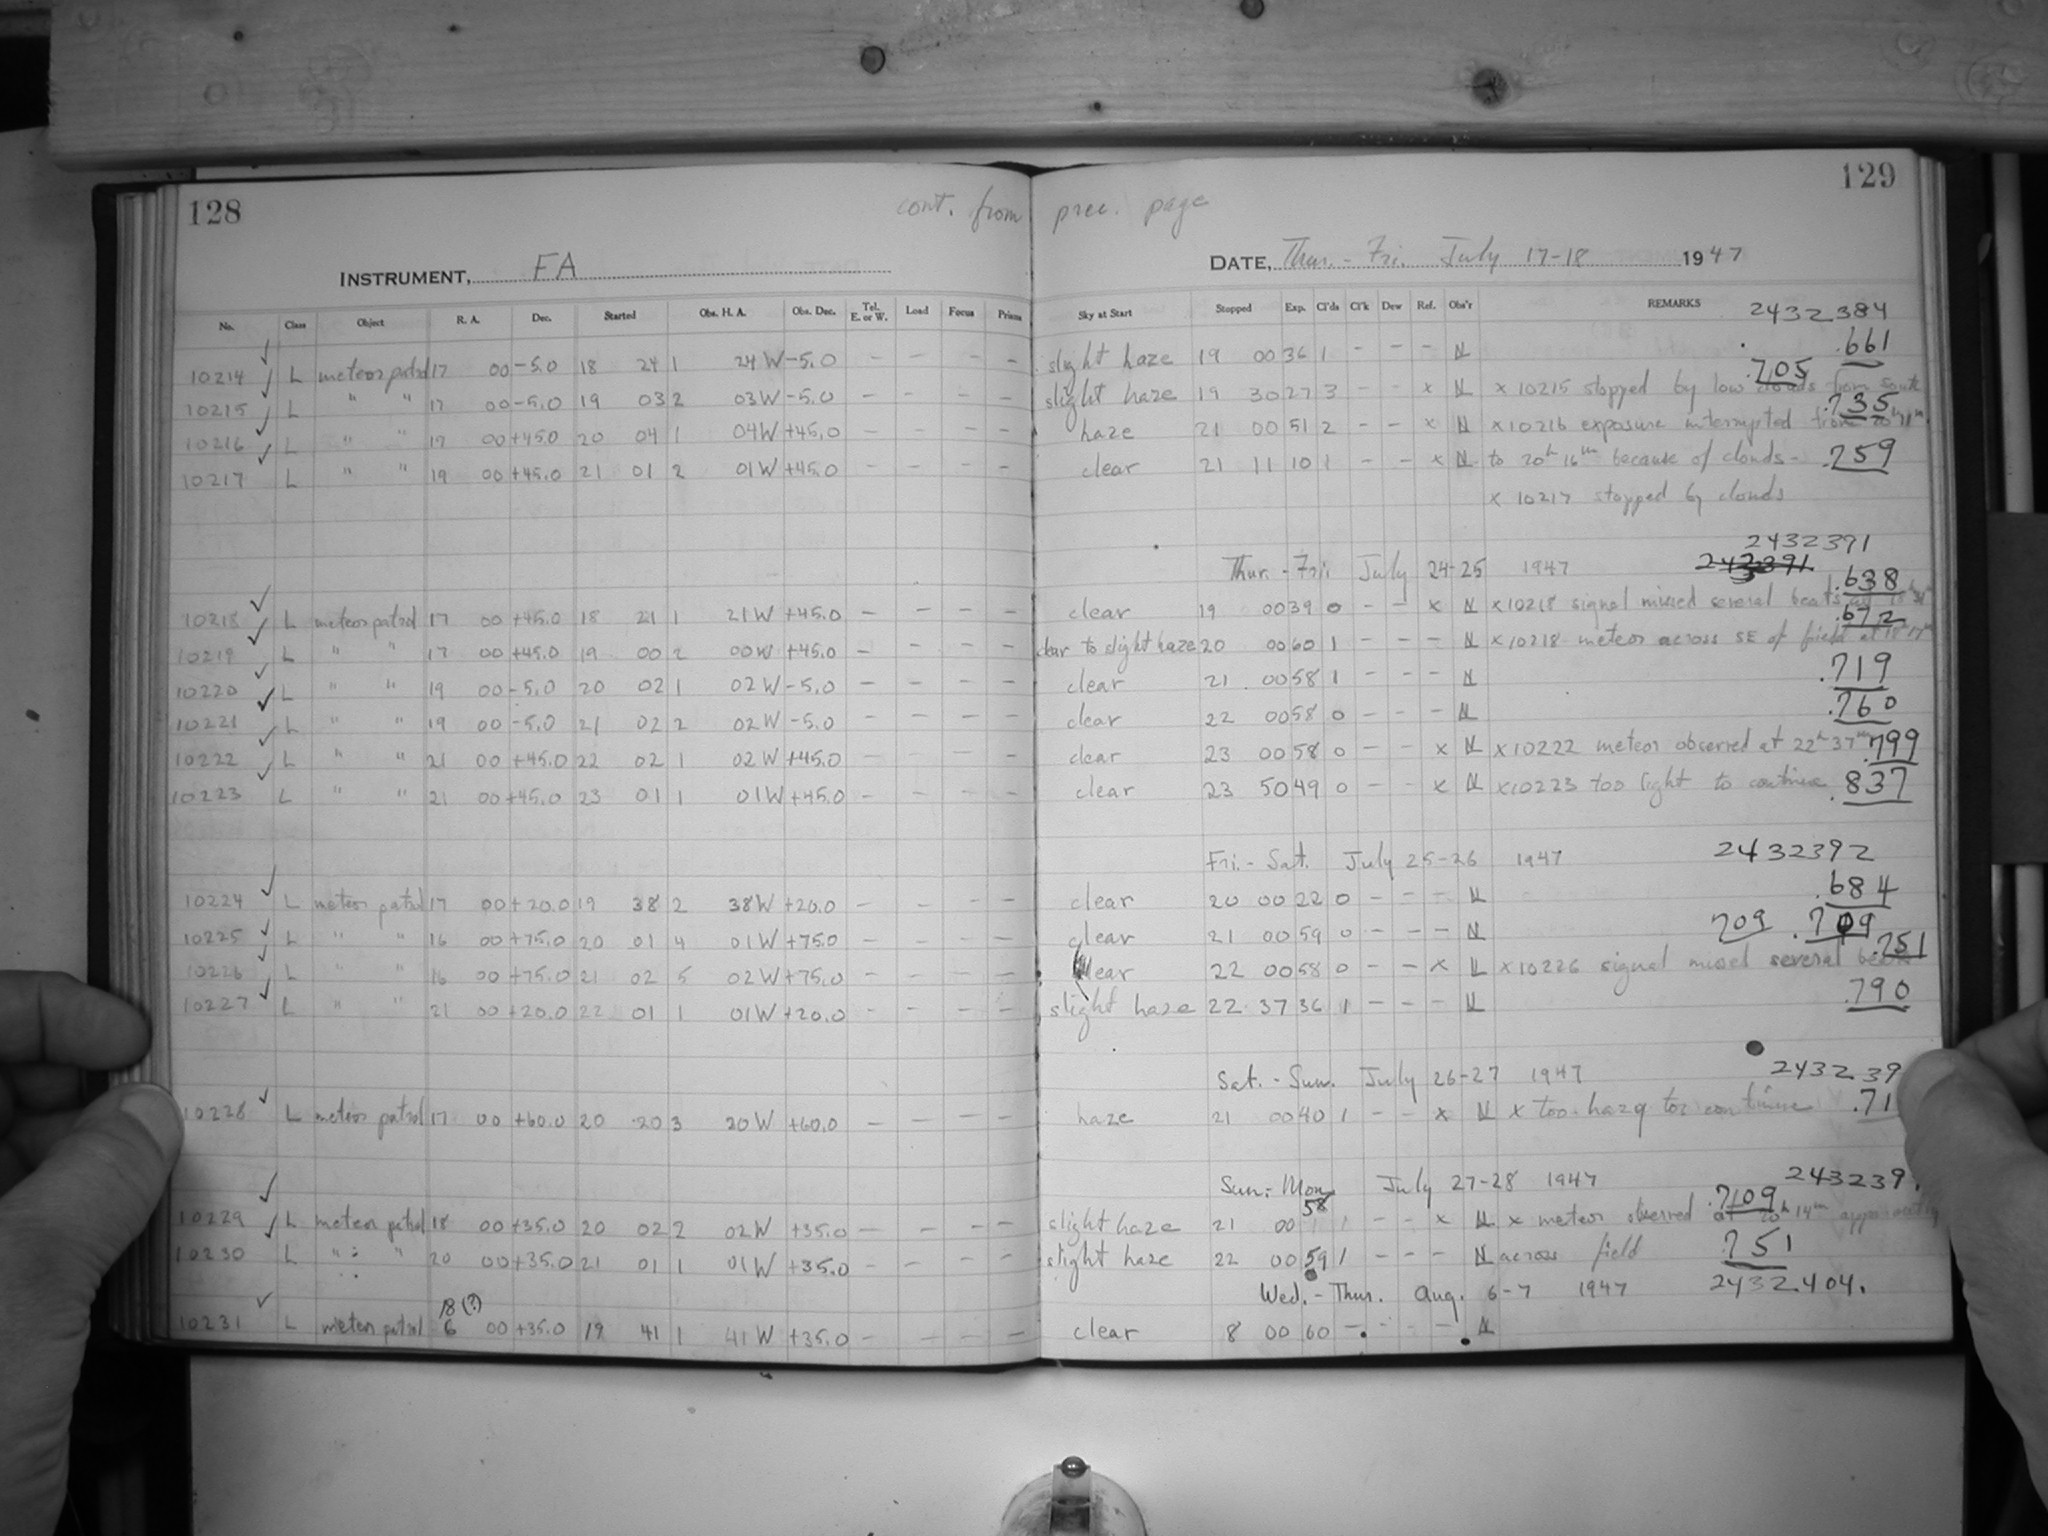 128 cont. from prec. page 129
INSTRUMENT, FA DATE, Thur. - Fri. July 17-18 1947
No. Class Object R. A. Dec. Started Obs. H. A. Obs. Dec. Tel. E. or W. Load Focus Prisms Sky at Start Stopped Exp. Cl'ds Cl'k Dew Ref. Obs'r REMARKS 2432384
10214 ✓ L meteor patrol 17 00 -5.0 18 24 1 24 W -5.0 - - - - slight haze 19 00 36 1 - - - N .661
10215 ✓ L " " 17 00 -5.0 19 03 2 03 W -5.0 - - - - slight haze 19 30 27 3 - - x N x 10215 stopped by low clouds from south .705
10216 ✓ L " " 17 00 +45.0 20 04 1 04 W +45.0 - - - - haze 21 00 51 2 - - x N x 10216 exposure interrupted from .735
10217 ✓ L " " 19 00 +45.0 21 01 2 01 W +45.0 - - - - clear 21 11 10 1 - - x N to 20h 16m because of clouds - .759
x 10217 stopped by clouds
2432391
Thur. - Fri. July 24-25 1947
10218 ✓ L meteor patrol 17 00 +45.0 18 21 1 21 W +45.0 - - - - clear 19 00 39 0 - - x N x 10218 signal missed several beats .638
10219 ✓ L " " 17 00 +45.0 19 00 2 00 W +45.0 - - - - clear to slight haze 20 00 60 1 - - - N x 10218 meteor across SE of field at .672
10220 ✓ L " " 19 00 -5.0 20 02 1 02 W -5.0 - - - - clear 21 00 58 1 - - - N .719
10221 ✓ L " " 19 00 -5.0 21 02 2 02 W -5.0 - - - - clear 22 00 58 0 - - - N .760
10222 ✓ L " " 21 00 +45.0 22 02 1 02 W +45.0 - - clear 23 00 58 0 - - x N x 10222 meteor observed at 22h 37m .799
10223 ✓ L " " 21 00 +45.0 23 01 1 01 W +45.0 - - - - clear 23 50 49 0 - - x N x 10223 too light to continue .837
Fri. - Sat. July 25-26 1947 2432392
10224 ✓ L meteor patrol 17 00 +20.0 19 38 2 38 W +20.0 - - - - clear 20 00 22 0 - - - L .684
10225 ✓ L " " 16 00 +75.0 20 01 4 01 W +75.0 - - - - clear 21 00 59 0 - - - N 709 .709
10226 ✓ L " " 16 00 +75.0 21 02 5 02 W +75.0 - - - - clear 22 00 58 0 - - x L x 10226 signal missed several beats .751
10227 ✓ L " " 21 00 +20.0 22 01 1 01 W +20.0 - - - - slight haze 22 37 36 1 - - - L .790
Sat. - Sun. July 26-27 1947 243239
10228 ✓ L meteor patrol 17 00 +60.0 20 20 3 20 W +60.0 - - - - haze 21 00 40 1 - - x N x too hazy to continue .71
Sun. - Mon. July 27-28 1947 243239
10229 ✓ L meteor patrol 18 00 +35.0 20 02 2 02 W +35.0 - - - - slight haze 21 00 58 1 - - x N x meteor observed at 20h 14m .7109
10230 ✓ L " " 20 00 +35.0 21 01 1 01 W +35.0 - - - - slight haze 22 00 59 1 - - - N across field .751
Wed. - Thur. Aug. 6-7 1947 2432404.
18 (?)
10231 ✓ L meteor patrol 6 00 +35.0 19 41 1 41 W +35.0 - - - - clear 8 00 60 - - - - N